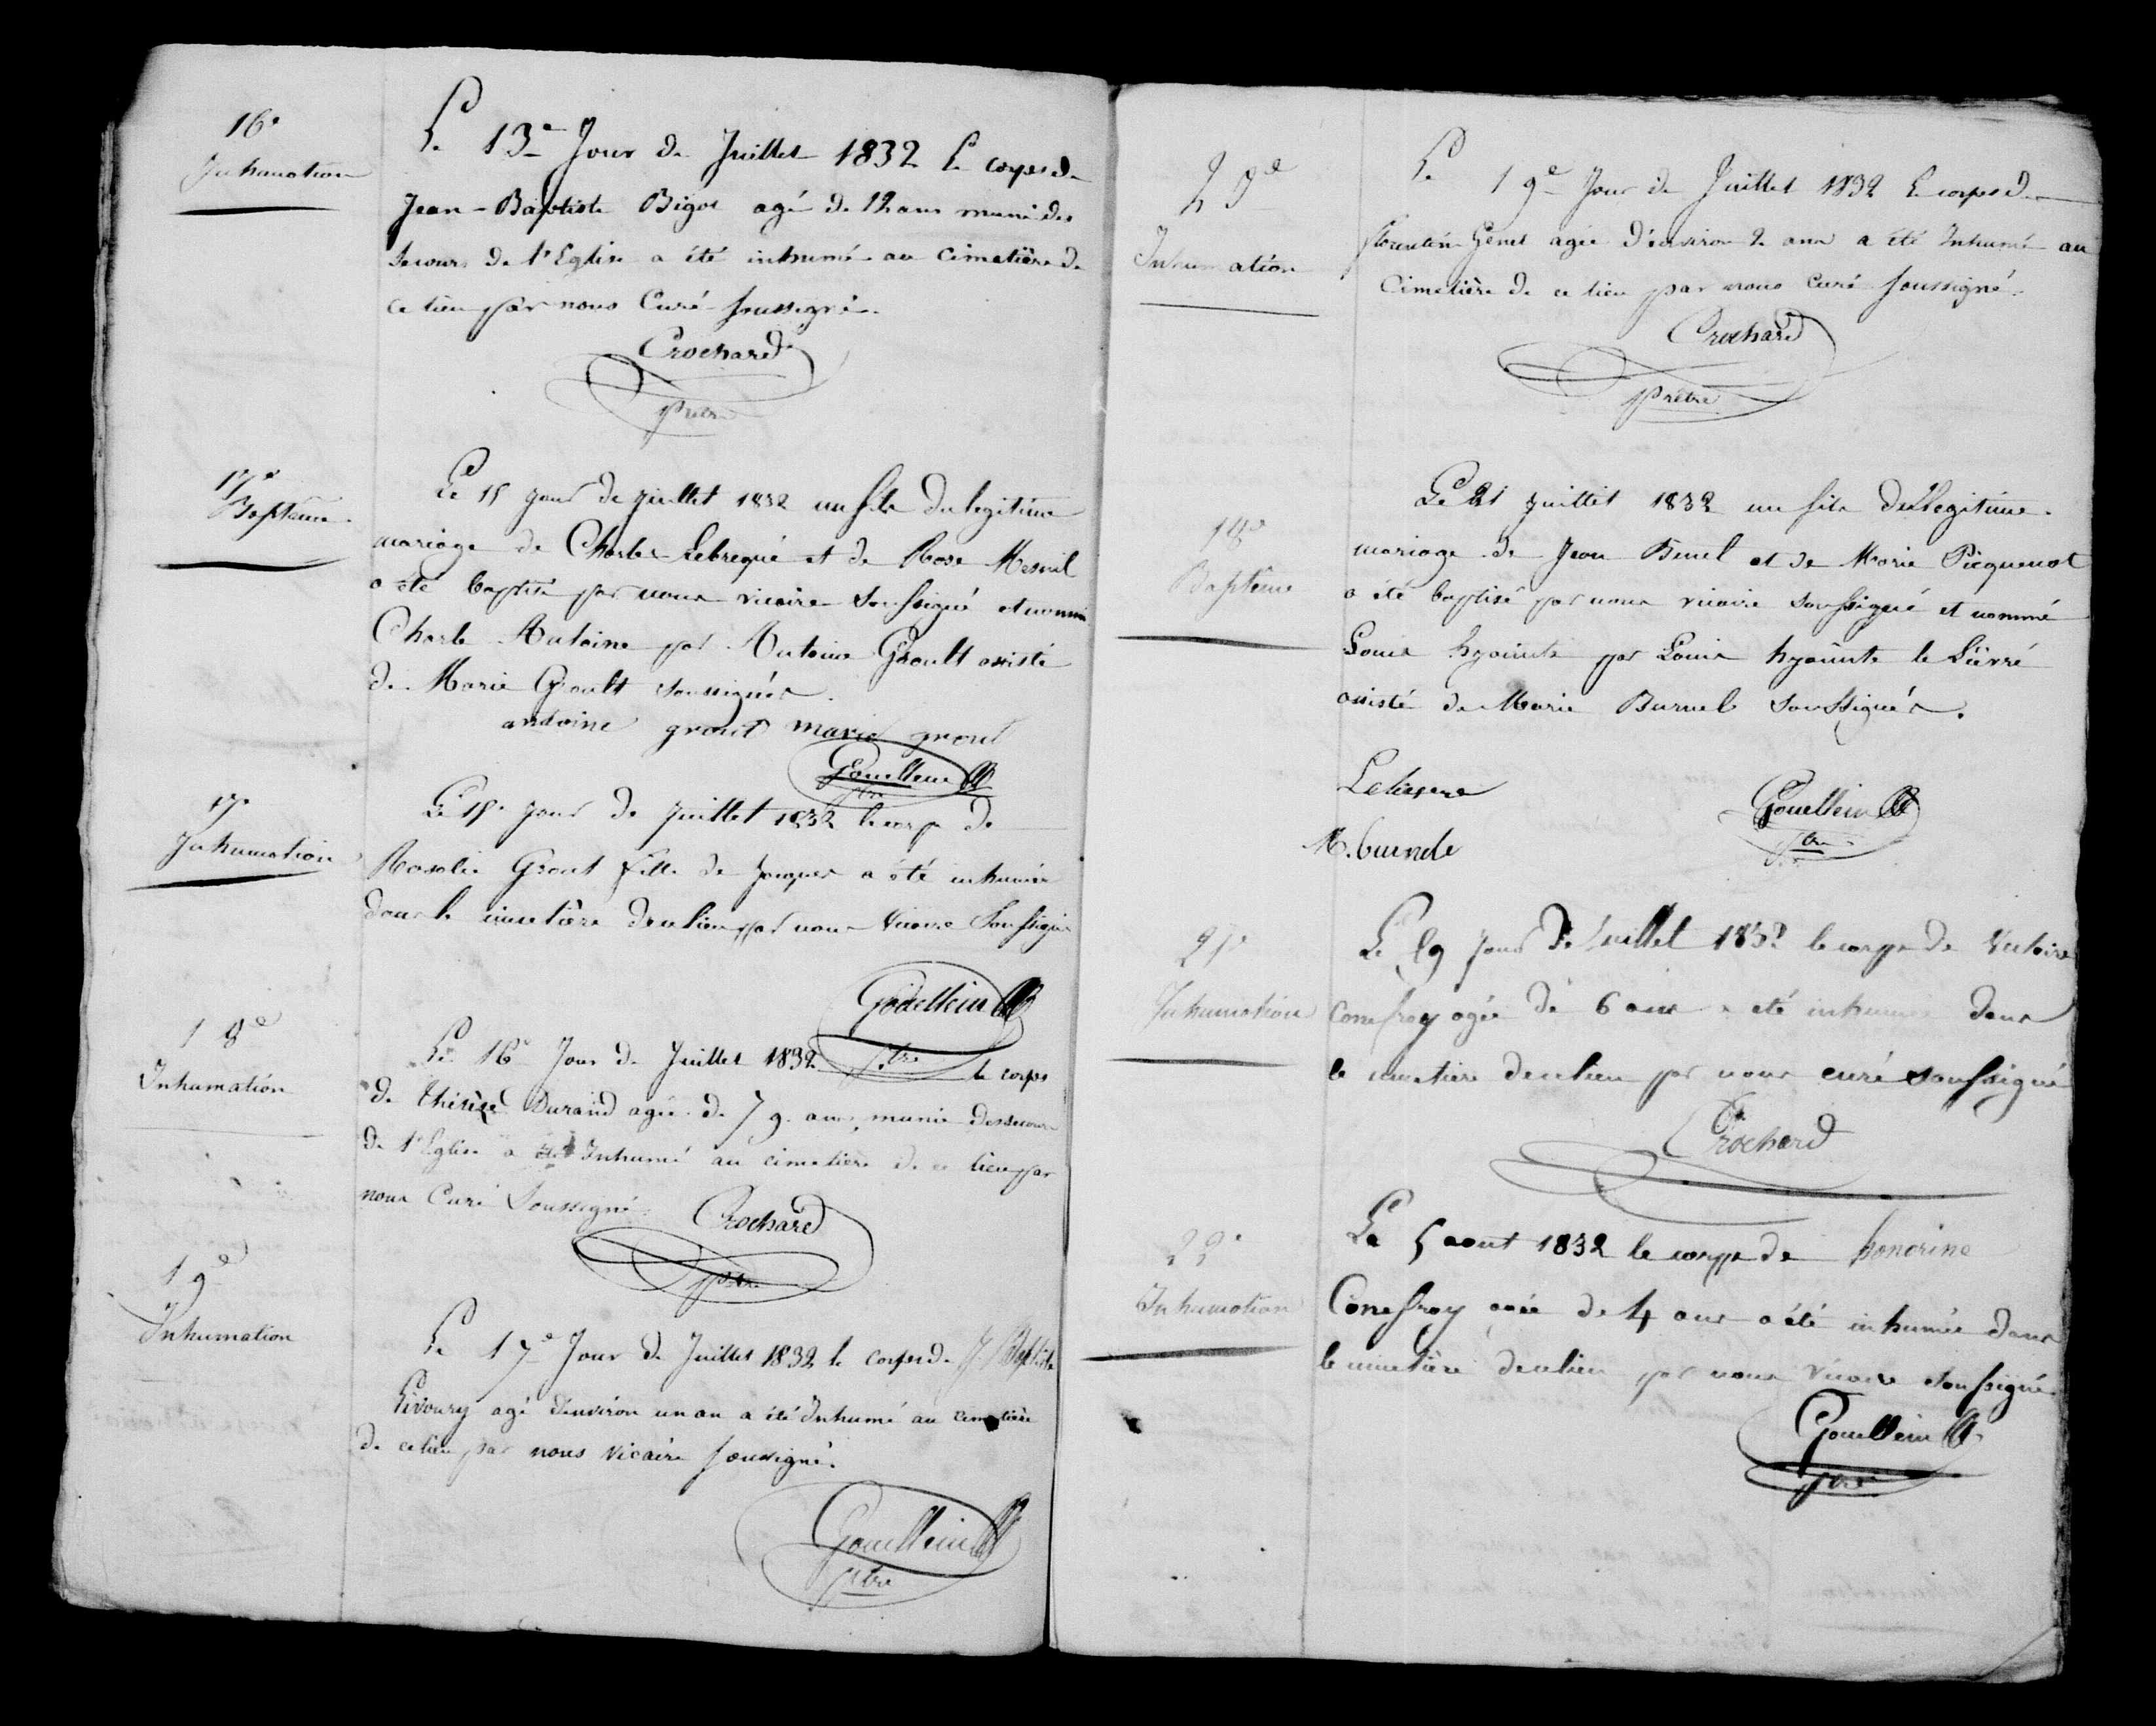 16e
Inhumation
Le 13e Jour de Juillet 1832 Le corps de
Jean-Baptiste Bigot agé de 12 ans muni des
secours de l'Eglise a été inhumé au Cimetière de
ce lieu par nous Curé soussigné.
Crochard
prêtre
17e
Baptême
Le 15 jour de juillet 1832 un fils du legitime
mariage de Charles Lebrequé et de Rose Mesnil
a été baptisé par nous vicaire soussigné et nommé
Charle Antoine par Antoine Groult assisté
de Marie Groult soussignés.
antoine grout marie grout
Gouellain
ptre
17e
Inhumation
Le 15e jour de juillet 1832 le corps de
Rosalie Grout fille de Jacques a été inhumée
dans le cimetière de ce lieu par nous Vicaire Soussigné
Gouellain
ptre
18e
Inhumation
Le 16e Jour de Juillet 1832 le corps
de Thérèse Durand agée de 79 ans, munie des secours
de l'Eglise a été Inhumé au cimetière de ce lieu par
nous Curé Soussigné.
Crochard
ptre
19e
Inhumation
Le 17e Jour de Juillet 1832 le corps de J. Baptiste
Livoury agé d'environ un an a été Inhumé au cimetière
de ce lieu par nous vicaire soussigné.
Gouellain
ptre
20e
Inhumation
Le 19e Jour de Juillet 1832 Le corps de
florentin Genet agée d'environ 2 ans a été Inhumé au
Cimetière de ce lieu par nous curé soussigné.
Crochard
prêtre
18e
Baptême
Le 21 juillet 1832 un fils du legitime
mariage de Jean Benel et de Marie Picquenot
a été baptisé par nous vicaire soussigné et nommé
Louis hyacinte par Louis hyacinte le Lièvre
assisté de Marie Burnel soussignés.
Lelievre
Gouellain
ptre
M. burnele
21e
Inhumation
Le 29 jour de Juillet 1832 le corps de Victoire
Conefroy agée de 6 ans a été inhumée dans
le cimetière de ce lieu par nous curé soussigné
Crochard
22e
Inhumation
Le 5 aout 1832 le corps de honorine
Conefroy agée de 4 ans a été inhumée dans
le cimetière de ce lieu par nous Vicaire soussigné.
Gouellain
ptre